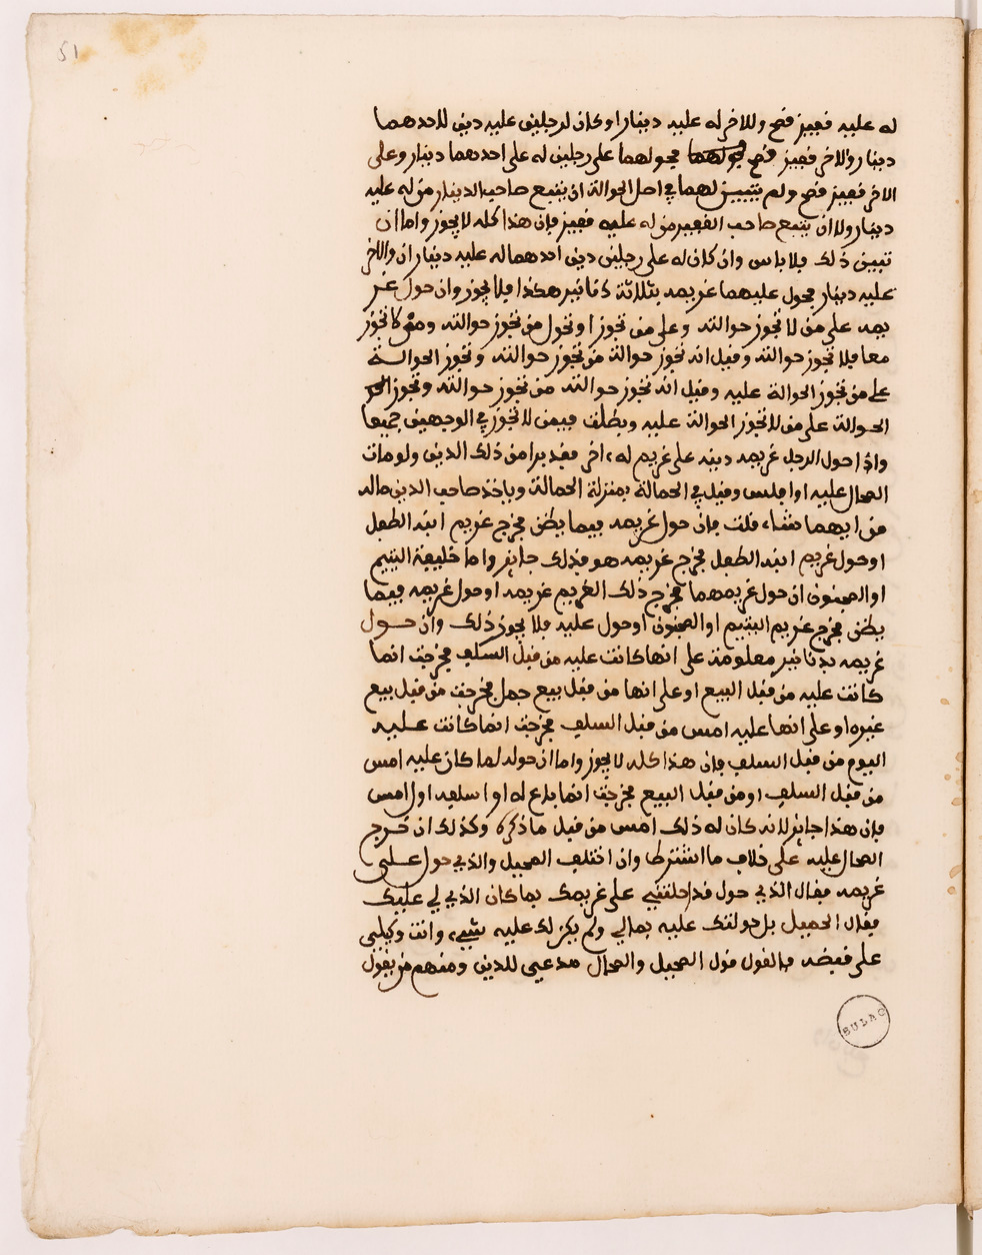 51
له عليه قفيز قمح وللاخر له عليه دينار او كان لرجلين عليه دين لاحدهما
دينار وللاخر قفيز قمح فحولهما على رجلين له على احدهما دينار وعلى
الاخر قفيز قمح ولم يتبين لهما في اصل الحوالة ان يتبع صاحب الدينار من له عليه
دينار ولا ان يتبع صاحب القفيز من له عليه قفيز فان هذا كله لا يجوز واما ان
تبين ذلك فلا باس وان كان له على رجلين دين احدهما له عليه ديناران والاخر
عليه دينار فحول عليهما غريمه بثلاثة دنانير هكذا فلا يجوز وان حول غر
يمه على من لا تجوز حوالته وعلى من تجوز او تحول من تجوز حوالته ومن لا تجوز
معا فلا تجوز حوالته وقيل انه تجوز حوالة من تجوز حوالته وتجوز الحوالــة
على من تجوز الحوالة عليه وقيل انه تجوز حوالته من تجوز حوالته وتجوز
الحوالة على من لا تجوز الحوالة عليه وبطلت فيمن لا تجوز في الوجهين جميعا
واذا حول الرجل غريمه دينه على غريم له ءاخر فقد برا من ذلك الدين ولو مات
المحال عليه او افلس وقيل في الحمالة بمنزلة الحمالة وياخذ صاحب الدين ماله
من ايهما شاء قلت فان حول غريمه فيما يظن فخرج غريم ابنه الطفل
او حول غريم ابنه الطفل فخرج غريمه هو فذلك جايز واما خليفة اليتيم
او المجنون ان حول غريمهما فخرج ذلك الغريم غريمه او حول غريمه فيما
يظن فخرج غريم اليتيم او المجنون او حول عليه فلا يجوز ذلك وان حــول
غريمه بدنانير معلومة على انها كانت عليه من قبل السلف فخرجت انما
كانت عليه من قبل البيع او على انها من قبل بيع جمل فخرجت من قبل بيع
غيره او على انها عليه امس من قبل السلف فخرجت انما كانت عــليه
اليوم من قبل السلف فان هذا كله لا يجوز واما ان حوله لما كان عليه امس
من قبل السلف او من قبل البيع فخرجت انما باع له او اسلفه اول امس
فان هذا جايز لانه كان له ذلك امس من قبل ما ذكره وكذلك ان خــرج
المحال عليه على خلاف ما اشترط وان اختلف المحيل والذي حول عــلى
غريمه فقال الذي حول قد احلتني على غريمك بما كان الذي لي عليك
فقال المحيل بل حولتك عليه بمالي ولم يكن لك عليه شيء وانت وكيلي
على قبضه فالقول قول المحيل والمحال مدعي للدين ومنهم من يقول
BULAC